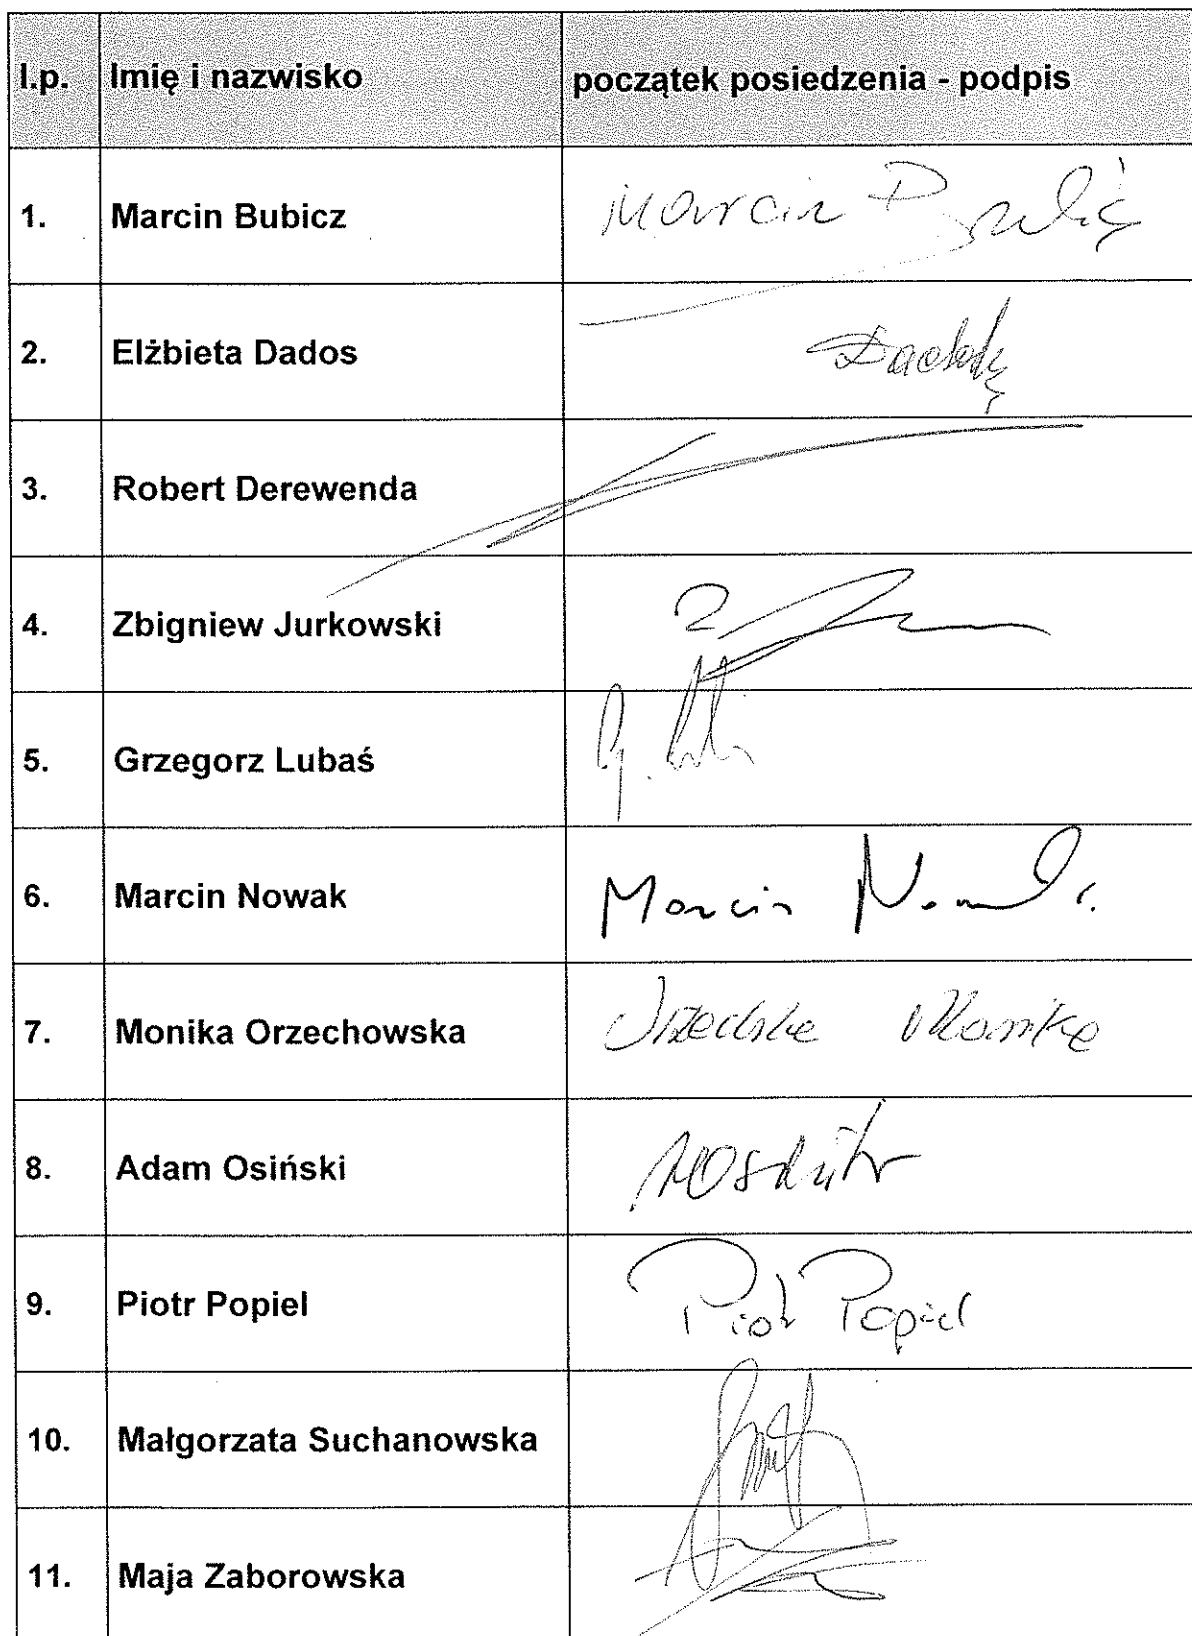 l.p. Imię i nazwisko początek posiedzenia - podpis
1. Marcin Bubicz Marcin
2. Elżbieta Dados
3. Robert Derewenda
4. Zbigniew Jurkowski
5. Grzegorz Lubaś
6. Marcin Nowak Marcin Nowak
7. Monika Orzechowska Monika
8. Adam Osiński
9. Piotr Popiel Piotr Popiel
10. Małgorzata Suchanowska
11. Maja Zaborowska